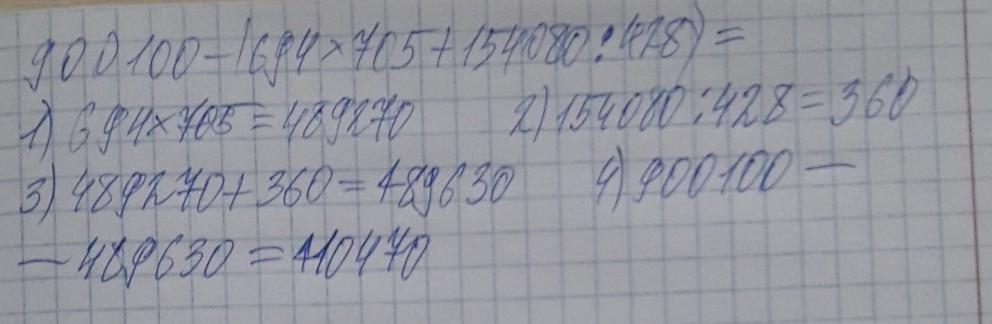 900100-(694×705+154080:428)=
1) 694×705=489270 2) 154080:428=360
3) 489270+360=489630 4) 900100-
-489630=410470